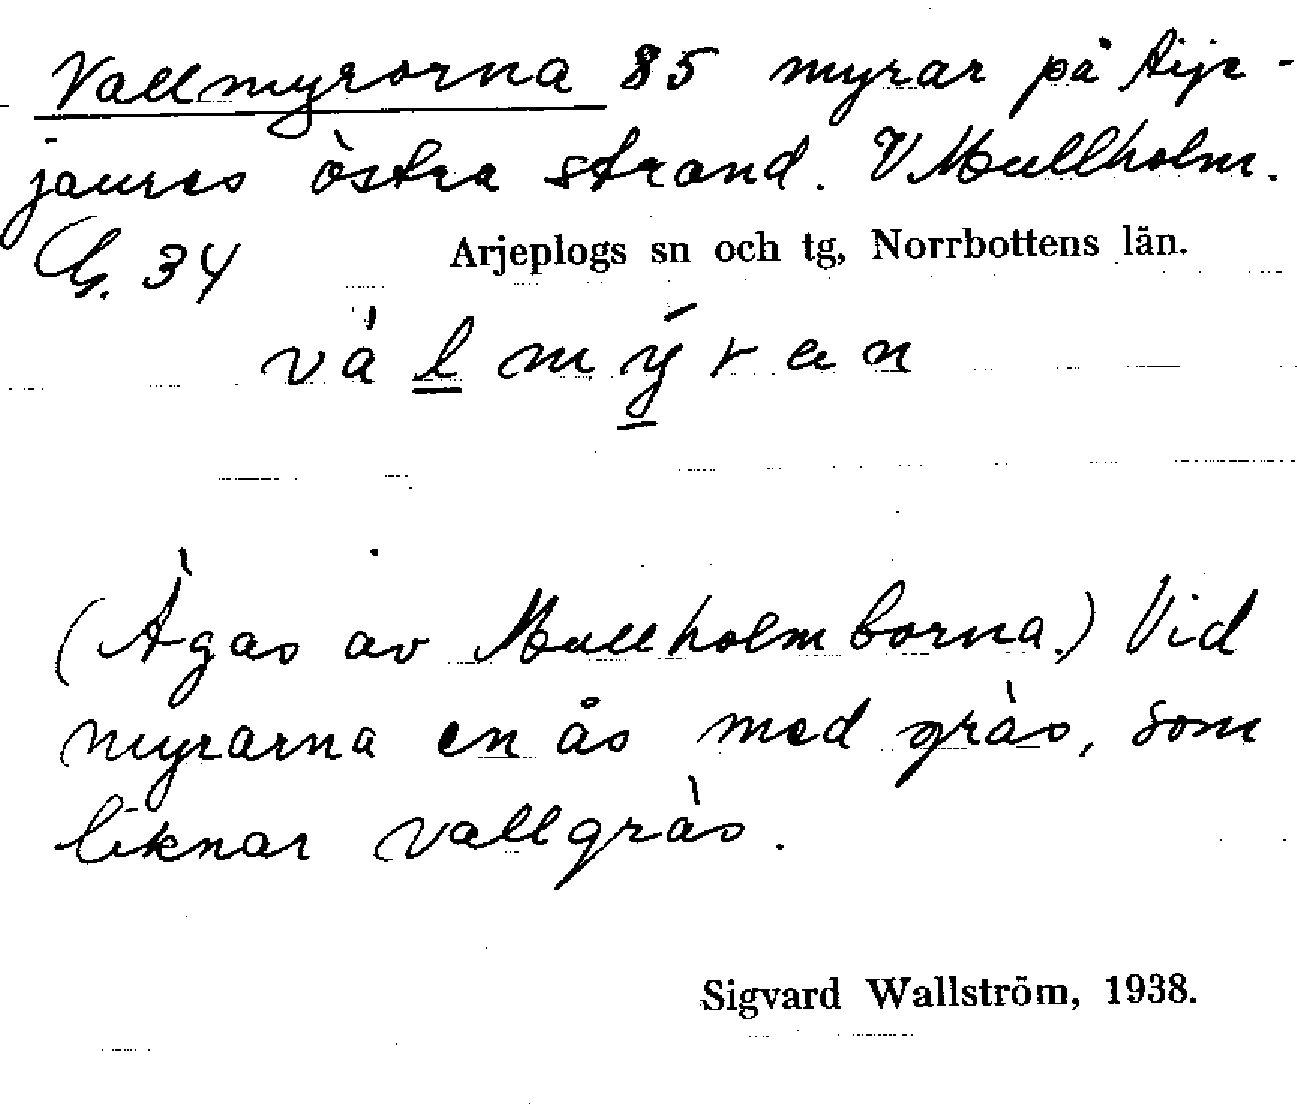 Vallmyrorna 85 myrar på Aije-
jaures östra strand. V Mullholm.
G. 34 Arjeplogs sn och tg, Norrbottens län.
vàlmýran
(Ägas av Mullholmborna.) Vid
myrarna en ås med gräs, som
liknar vallgräs.
Sigvard Wallström, 1938.